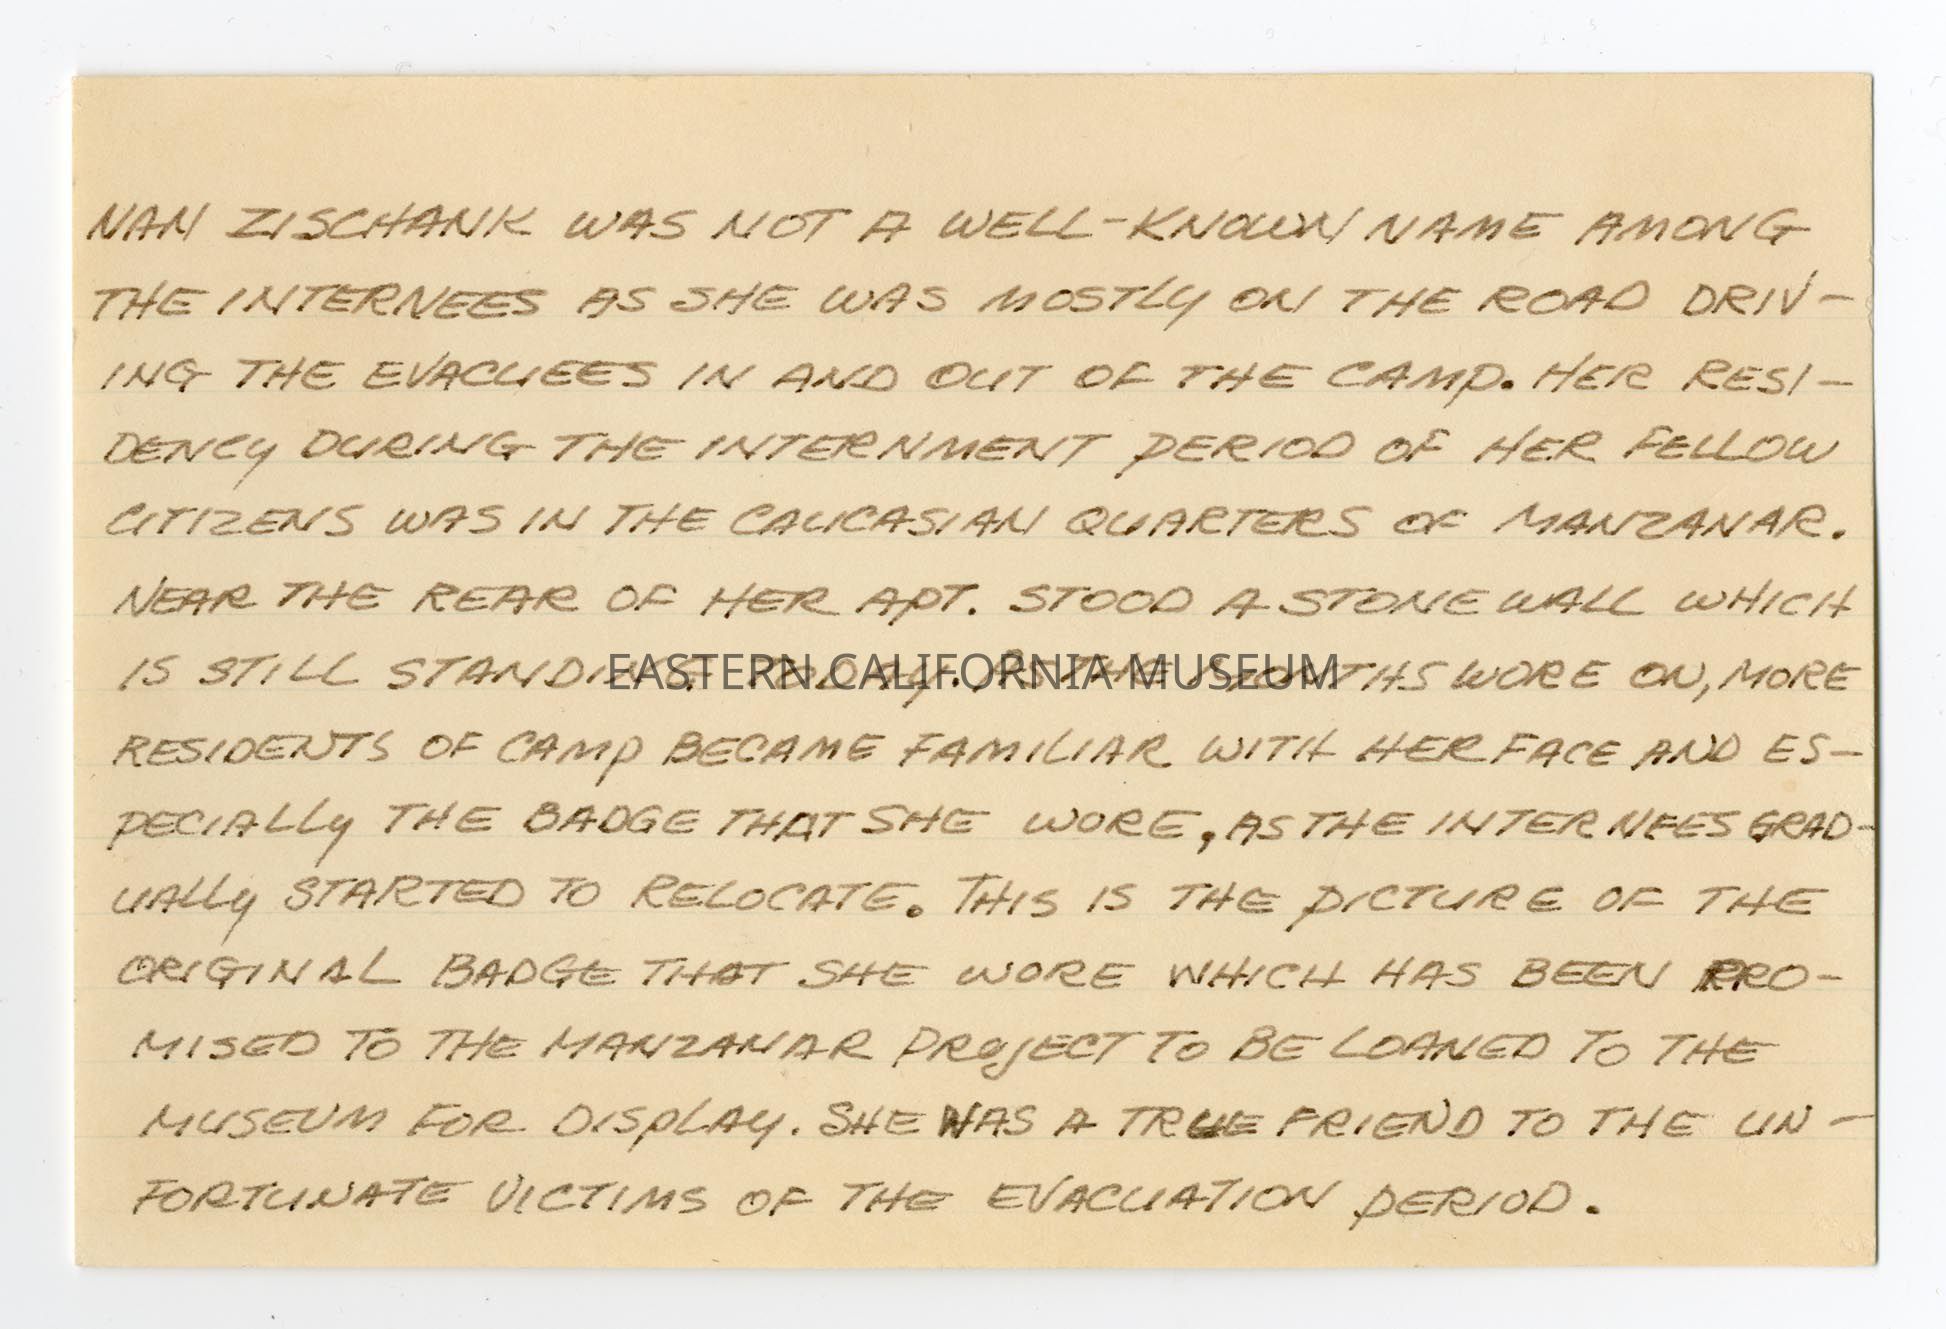 NAN ZISCHANK WAS NOT A WELL-KNOWN NAME AMONG
THE INTERNEES AS SHE WAS MOSTLY ON THE ROAD DRIV-
ING THE EVACUEES IN AND OUT OF THE CAMP. HER RESI-
DENCY DURING THE INTERNMENT PERIOD OF HER FELLOW
CITIZENS WAS IN THE CAUCASIAN QUARTERS OF MANZANAR.
NEAR THE REAR OF HER APT. STOOD A STONE WALL WHICH
IS STILL STANDING TODAY. AS THE MONTHS WORE ON, MORE
EASTERN CALIFORNIA MUSEUM
RESIDENTS OF CAMP BECAME FAMILIAR WITH HER FACE AND ES-
PECIALLY THE BADGE THAT SHE WORE, AS THE INTERNEES GRAD-
UALLY STARTED TO RELOCATE. THIS IS THE PICTURE OF THE
ORIGINAL BADGE THAT SHE WORE WHICH HAS BEEN PRO-
MISED TO THE MANZANAR PROJECT TO BE LOANED TO THE
MUSEUM FOR DISPLAY. SHE WAS A TRUE FRIEND TO THE UN-
FORTUNATE VICTIMS OF THE EVACUATION PERIOD.